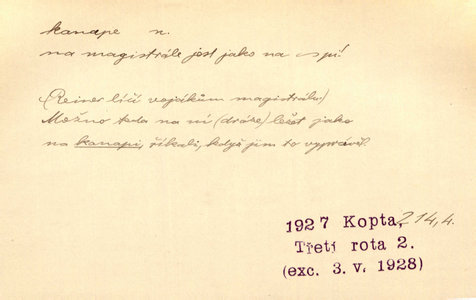 kanape n.
na magistrále jest jako na spí!
(Reiner líčí vojákům magistrálu)
Možno teda na ní (dráze) ležet jako
na kanapi, říkali, když jim to vyprávěl.
1927 Kopta, 214,4.
Třetí rota 2.
(exc. 3. v. 1928)